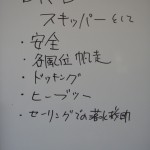 スキッパーとして
・安全
・各風位帆走
・ドッキング
・ヒーブツー
・セーリングでの落水救助